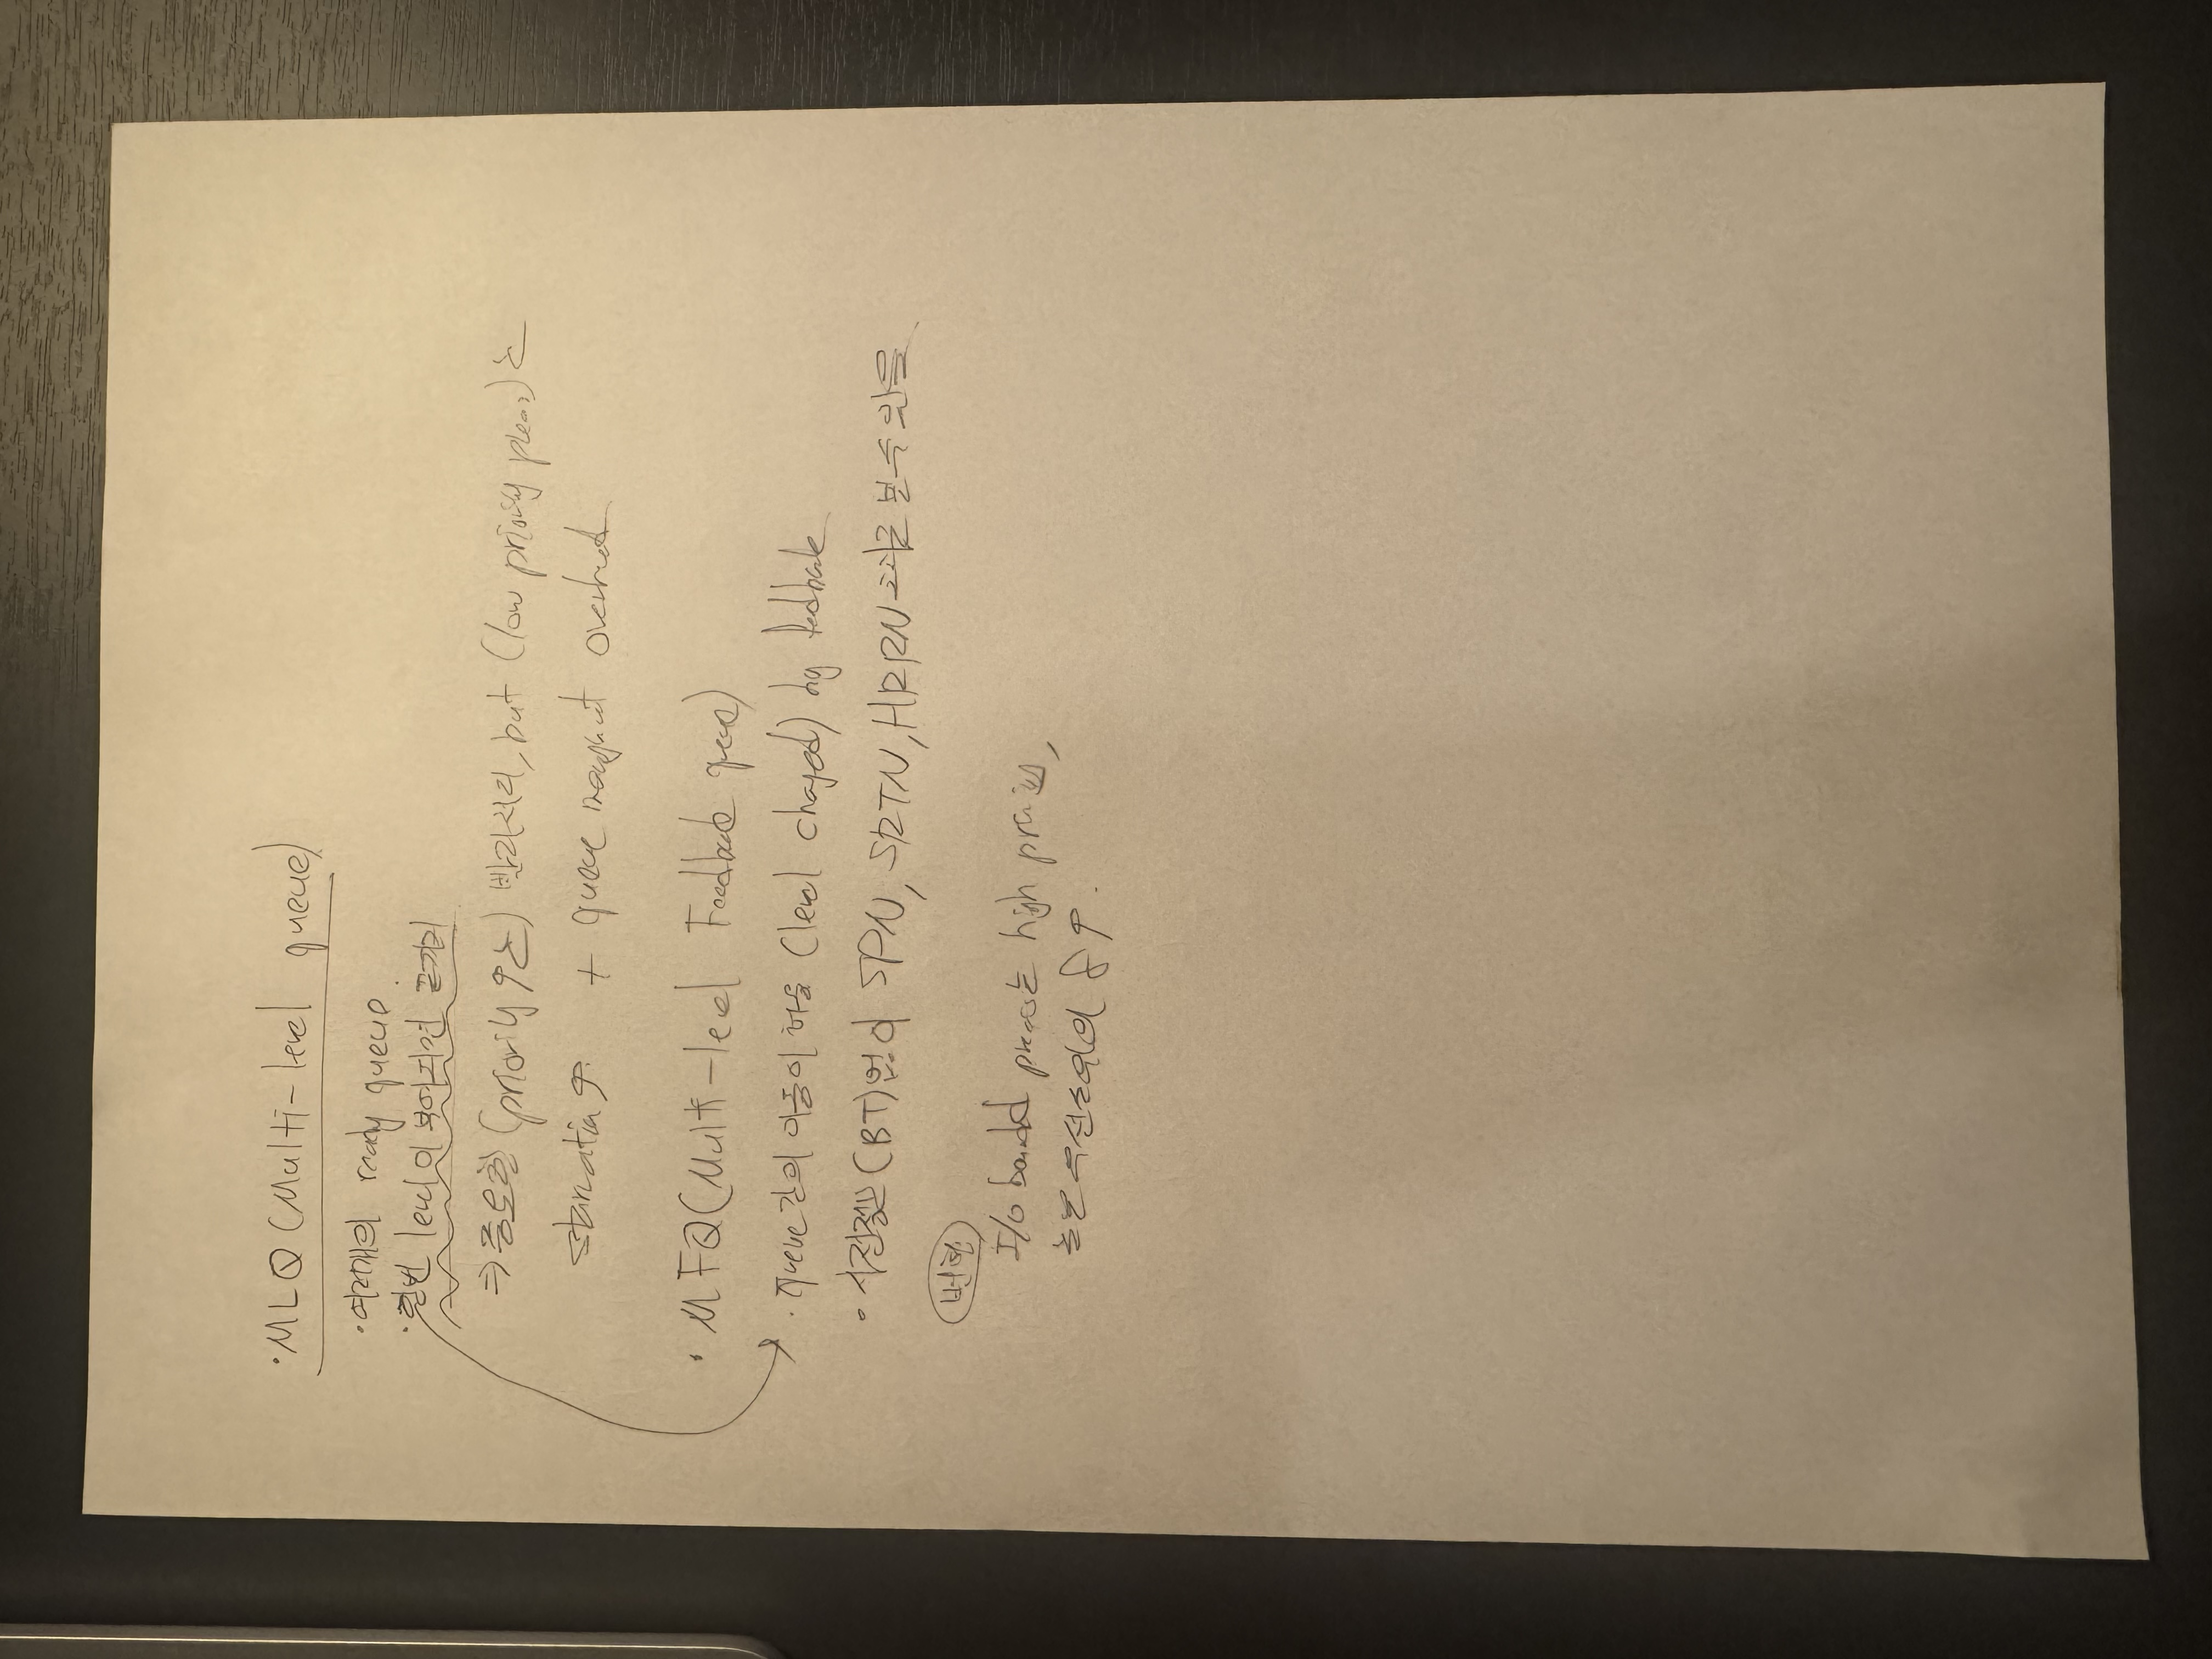 ·MLQ (Multi-level queue)
·여러개의 ready queue.
·한번 level이 부여되면 끝까지
⇒ 중요한 (priority ↑는) 빨리처리, but (low priority process)는
starvation ↑. + queue management overhead
· MFQ (Multi-level Feedback queue)
· queue간의 이동이 허용 (level changed) by feedback
· 사전정보(BT)없이 SPN, SRTN, HRRN 효과를 볼 수 있음
변형
I/O bounded process는 high priority,
높은 우선순위의 ↑.